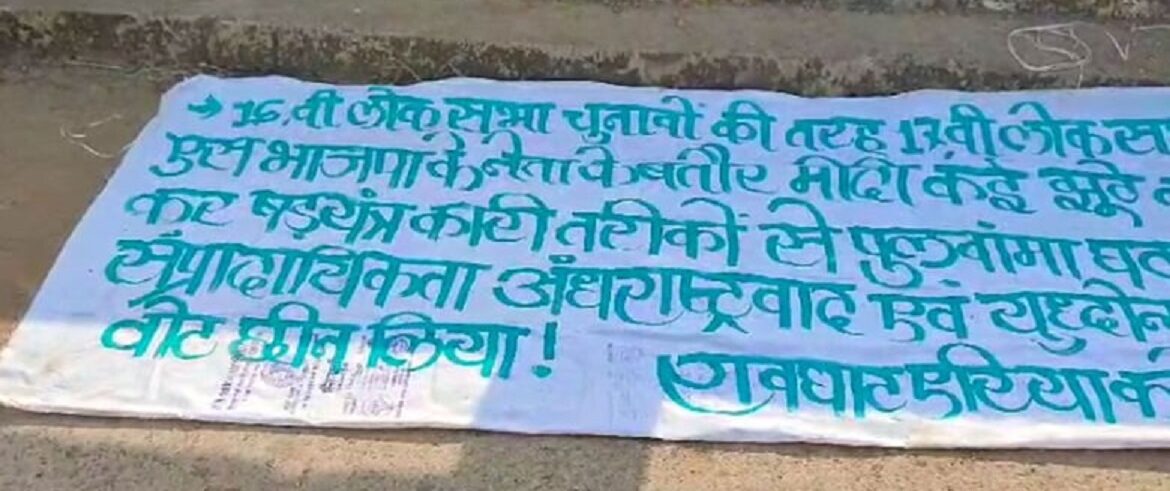 → 16.वी लोक सभा चुनावों की तरह 17.वी लोक स
एस भाजपा के नेता के बतौर मोदी कई झूठे
कर षड़यंत्र कारी तरीकों से पुलवांमा घट
संप्रादायिकता अंधराष्ट्रवाद एवं युध्दोन
वोट छीन लिया!
एरिया क